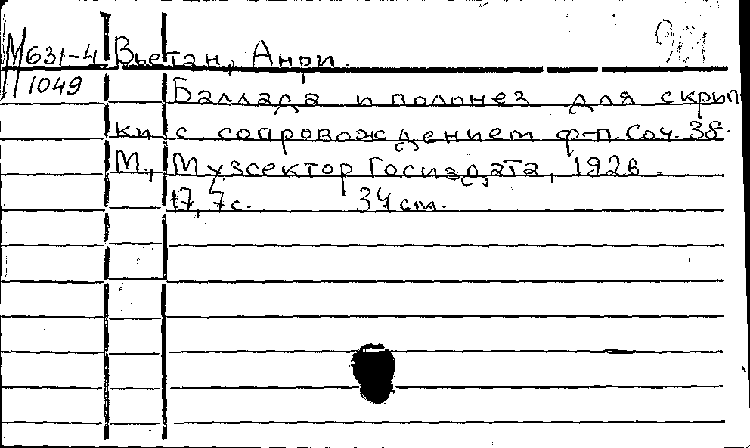 М631-4 Вьетан, Анри.
1049 Баллада и полонез для скрип
ки с сопровождением ф-п. Соч. 38.
М., Музсектор Госиздата, 1926.
17, 7 с. 34 см.